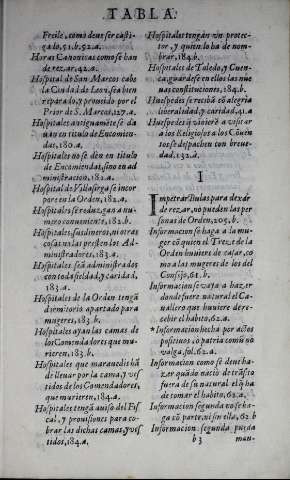 TABLA.
Freile, como deue ser casti-
ga lo, 51. b. 52. a.
Horas Canonicas como se han
de rezar, 42. a.
Hospital de San Marcos cabo
la Ciudad de Leon, sea bien
reparado, y proueido por el
Prior de S. Marcos, 127. a.
Hospitales antiguamẽte se dã
uan en titulo de Encomien-
das, 180. a.
Hospitales no se dẽn en titulo
de Encomiendas, sino en ad
ministracion, 182. a.
Hospital de Villasirga se incor
pore en la Orden, 182. a.
Hospitales se reduzgan a nu-
mero conueniente, 182. b.
Hospitales, sus dineros, ni otras
cosas no las presten los Ad-
ministradores, 183. a.
Hospitales seã administrados
con toda fieldad, y caridad,
183. a.
Hospitales de la Orden tengã
dormitorio apartado para
mugeres, 183. b.
Hospitales ayan las camas de
los Comendadores que mu-
rieren, 183. b.
Hospitales que marauedis hã
de lleuar por la cama, y ves
tidos de los Comendadores,
que murieren, 184. a.
Hospitales tengã auiso del Fis
cal, y prouisiones para co-
brar las dichas camas, y ves
tidos, 184. a.
Hospitales tengan vn protec-
tor, y quien lo ha de nom-
brar, 184. b.
Hospitales de Toledo, y Cuen-
ca, guardese en ellos las nue
uas constituciones, 184. b.
Huespedes se recibã cõ alegria
liberalidad, y caridad, 41. a.
Huespedes q̃ vinieren a visitar
a los Religiosos a los Cõuen
tos se despachen con breue-
dad. 132. a.
I
Impetrar bulas para dexar
de rezar, no pueden las per
sonas de Orden, 205. b.
Informacion se haga a la mu-
ger cõ quien el Treze de la
Orden huuiere de casar, co
mo a las mugeres de los del
Consejo, 61. b.
Informacion se vaya a hazer
donde fuere natural el Ca-
uallero que huuiere de re-
cebir el habito, 62. a.
*Informacion hecha por actos
positiuos, o patria comũ no
valga, fol. 62. a.
Informacion como se deue ha-
zer quãdo nacio de trãsito
fuera de su natural el q̃ ha
de tomar el habito, 62. a.
Informacion segunda no se ha-
ga cõ parte, ni sin ella, 62. b
Informacion segunda pueda
b 3 man-